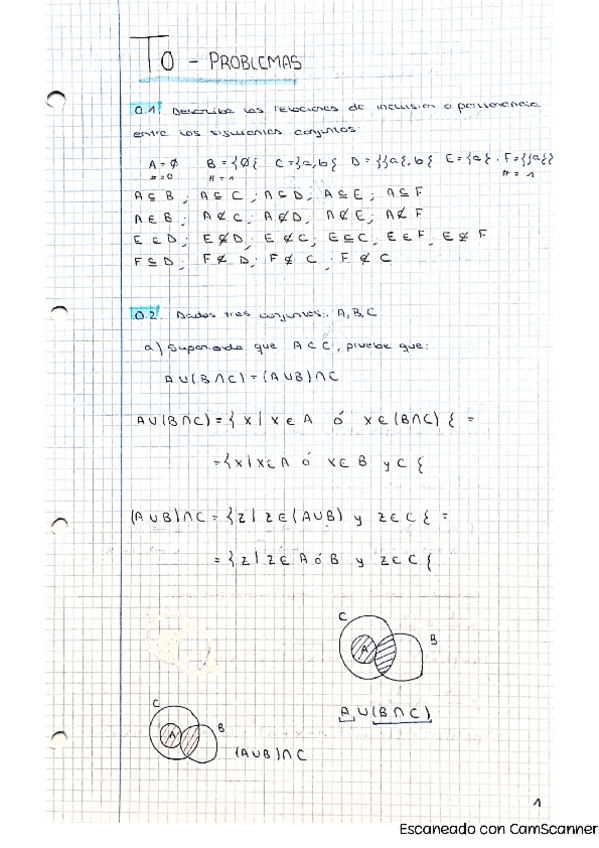 T0 - PROBLEMAS
0.1. Describa las relaciones de inclusión o pertenencia
entre los siguientes conjuntos:
A = ∅ B = {∅{ C = }a,b{ D = {}a{,b{ E = {a{ . F = {}a{{
#=0 #=1 #=1
A ⊆ B ; A ⊆ C ; A ⊆ D ; A ⊆ E ; A ⊆ F
A ∈ B ; A ∉ C ; A ∉ D ; A ∉ E ; A ∉ F
E ∈ D ; E ⊄ D ; E ∉ C ; E ⊆ C , E ∈ F , E ⊄ F
F ⊆ D ; F ∉ D ; F ∉ C ; F ⊄ C
0.2. Dados tres conjuntos: A, B, C
a) Suponiendo que A ⊂ C, pruebe que:
A ∪ (B ∩ C) = (A ∪ B) ∩ C
A ∪ (B ∩ C) = { x | x ∈ A ó x ∈ (B ∩ C) { =
= { x | x ∈ A ó x ∈ B y C {
(A ∪ B) ∩ C = { z | z ∈ (A ∪ B) y z ∈ C { =
= { z | z ∈ A ó B y z ∈ C {
C
A
B
A ∪ (B ∩ C)
C
A
B
(A ∪ B) ∩ C
1
Escaneado con CamScanner